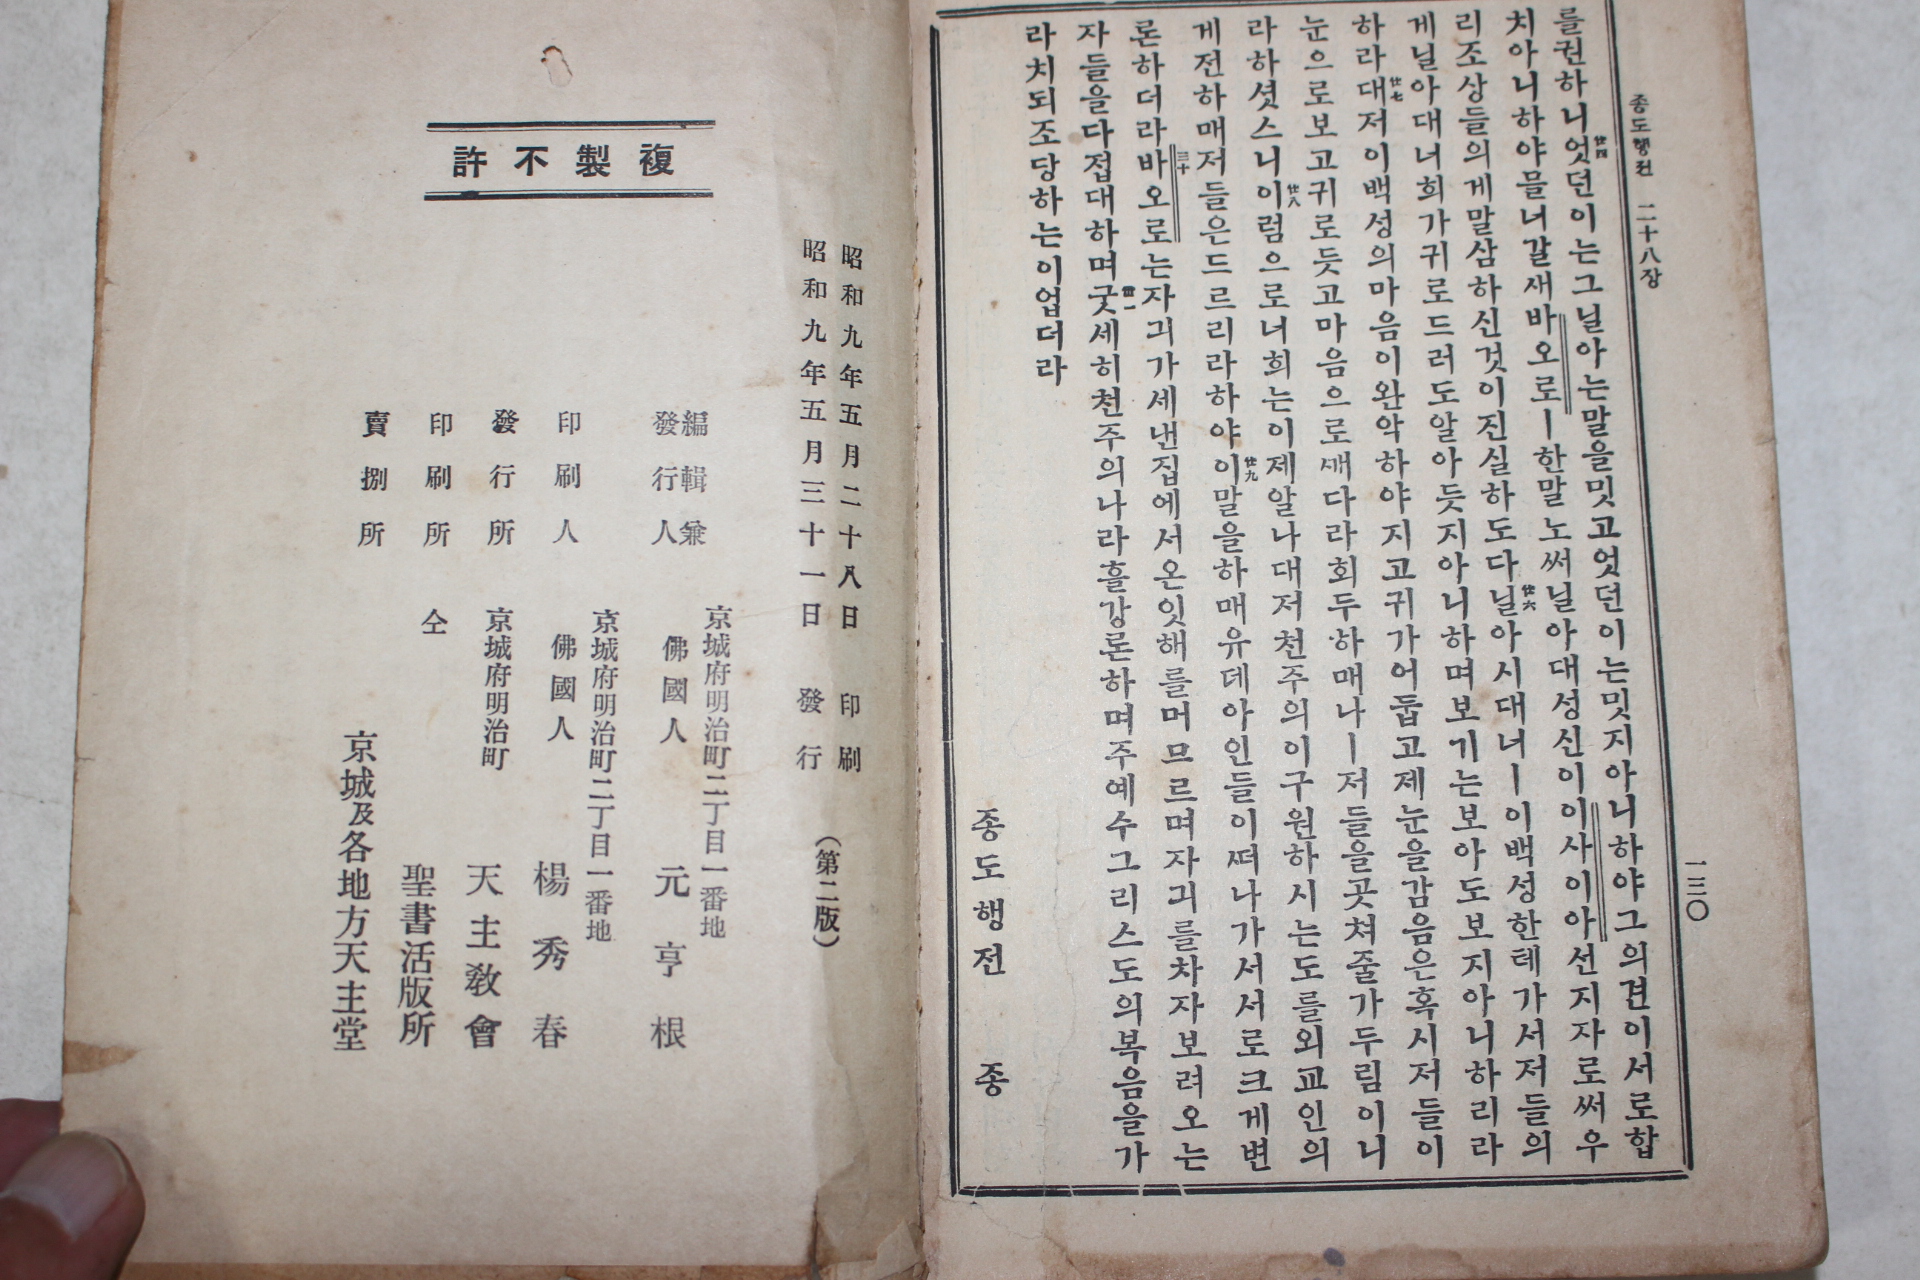 종도행전 二十八장
一三〇
를권하니 廿四 엇던이는그닐아는말을밋고엇던이는밋지아니하야그의견이서로합
치아니하야믈너갈새바오로ㅣ한말노써닐아대성신이이사이아선지자로써우
리조상들의게말삼하신것이진실하도다 廿六 닐아시대너ㅣ이백성한테가서저들의
게닐아대너희가귀로드러도알아듯지아니하며보기는보아도보지아니하리라
하라 廿七 대저이백성의마음이완악하야지고귀가어둡고제눈을감음은혹시저들이
눈으로보고귀로듯고마음으로ᄭᅢ다라회두하매나ㅣ저들을곳쳐줄가두림이니
라하셧스니 廿八 이럼으로너희는이제알나대저천주의이구원하시는도를외교인의
게전하매저들은드르리라하야 廿九 이말을하매유데아인들이ᄯᅥ나가서서로크게변
론하더라 三十 바오로는자긔가세낸집에서온잇해를머므르며자긔를차자보려오는
자들을다접대하며 卅一 굿세히천주의나라흘강론하며주예수그리스도의복음을가
라치되조당하는이업더라
종도행전 종
昭和九年五月二十八日 印刷
昭和九年五月三十一日 發行
(第二版)
複製不許
編輯兼
發行人
京城府明治町二丁目一番地
佛國人 元亨根
印刷人
京城府明治町二丁目一番地
佛國人 楊秀春
發行所 京城府明治町 天主敎會
印刷所 仝 聖書活版所
賣捌所 京城及各地方天主堂